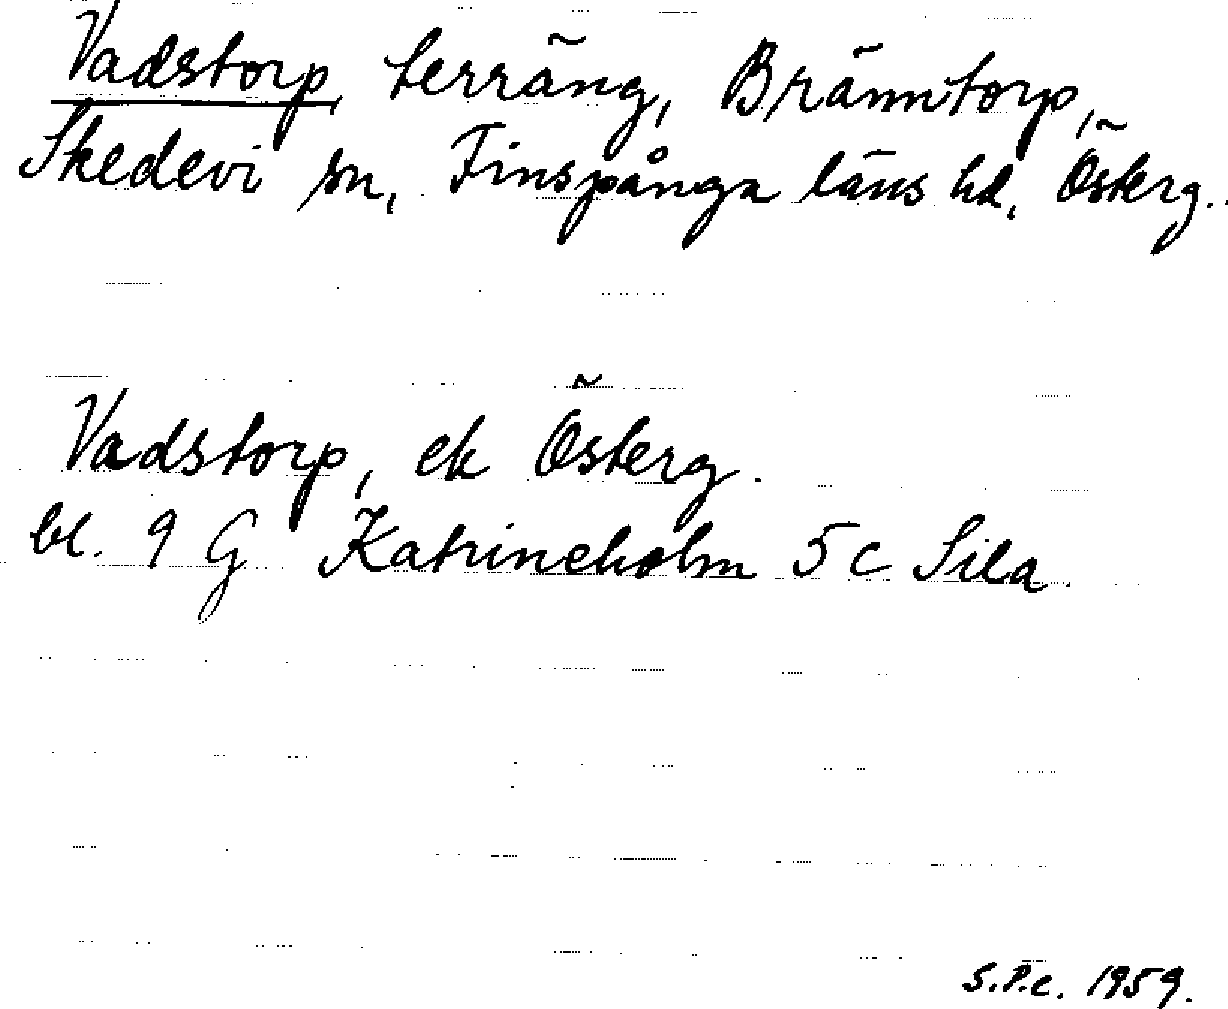 Vadstorp, terräng, Bränntorp,
Skedevi sn, Finspånga läns hd, Österg.
Vadstorp, ek Österg.
bl. 9 G Katrineholm 5 c Sila.
S.P.c. 1959.